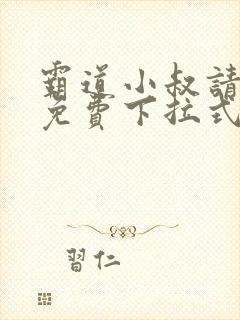 霸道小叔請
免費下拉式
習仁